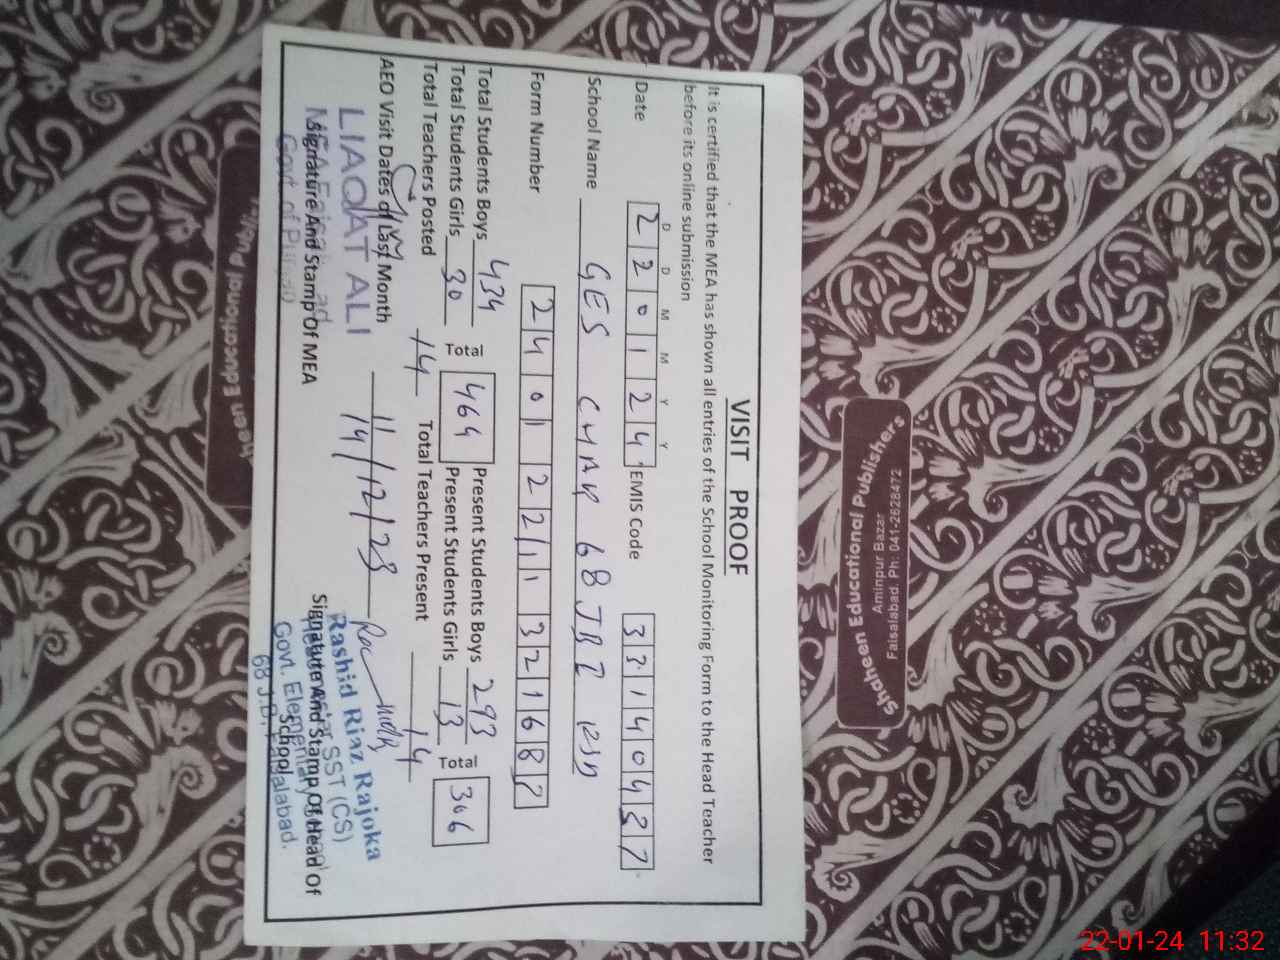 VISIT PROOF
It is certified that the MEA has shown all entries of the School Monitoring Form to the Head Teacher
before its online submission
D D M M Y Y
Date 2 2 0 1 2 4 EMIS Code 3 3 1 4 0 4 3 7
School Name GES CHAK 68 JB
Form Number 2 4 0 1 2 2 1 1 3 2 1 6 8 2
Total Students Boys 434 Present Students Boys 293
Total Students Girls 30 Total 464 Present Students Girls 13 Total 306
Total Teachers Posted 14 Total Teachers Present 14
AEO Visit Dates of Last Month 11/12/23
14
LIAQAT ALI
MEA Faisalabad
Govt of Punjab
Signature And Stamp Of MEA
Rashid Riaz Rajoka
SST (CS)
Govt. Elementary School
68 J.B. Faisalabad.
Signature And Stamp Of Head Of
School
Shaheen Educational Publishers
Aminpur Bazar
Faisalabad. Ph: 041-2628472
heen Educational Publis
22-01-24 11:32